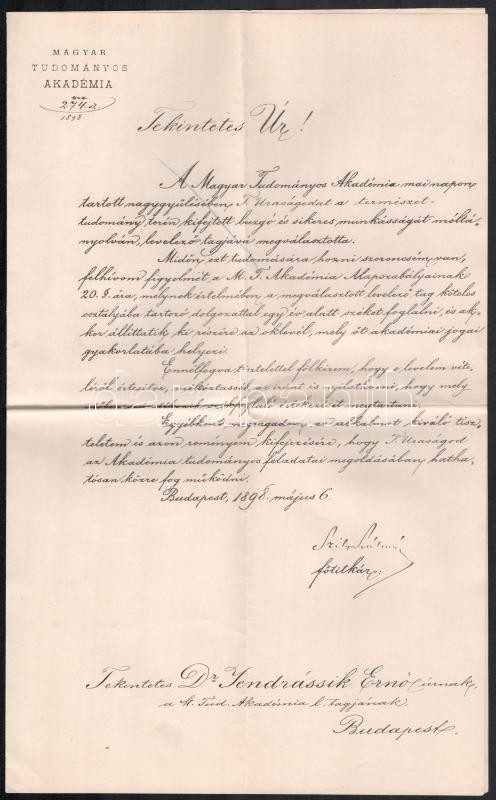 MAGYAR
TUDOMÁNYOS
AKADÉMIA
274. sz.
1898.
Tekintetes Úr!
A Magyar Tudományos Akadémia mai napon
tartott nagygyülésében T. Uraságodat a természet-
tudomány terén kifejtett buzgó és sikeres munkásságát méltá-
nyolván, levelező tagjává megválasztotta.
Midőn ezt tudomására hozni szerencsém van,
felhívom figyelmét a M. T. Akadémia Alapszabályainak
20. §-ára, melynek értelmében a megválasztott levelező tag köteles
osztályába tartozó dolgozattal egy év alatt széket foglalni, és ak-
kor állíttatik ki részére az oklevél, mely őt akadémiai jogai
gyakorlatába helyezi.
Ennélfogva tisztelettel fölkérem, hogy e levelem véte-
léről értesítve, méltóztassék az iránt is nyilatkozni, hogy mely
székfoglaló értekezését megtartani.
Egyébként megragadom az alkalmat kiváló tisz-
teletem és azon reményem kifejezésére, hogy T. Uraságod
az Akadémia tudományos feladatai megoldásában hatha-
tósan közre fog működni.
Budapest, 1898. május 6.
Szily Kálmán
főtitkár.
Tekintetes Dr Jendrássik Ernő úrnak,
a M. Tud. Akadémia l. tagjának
Budapest.